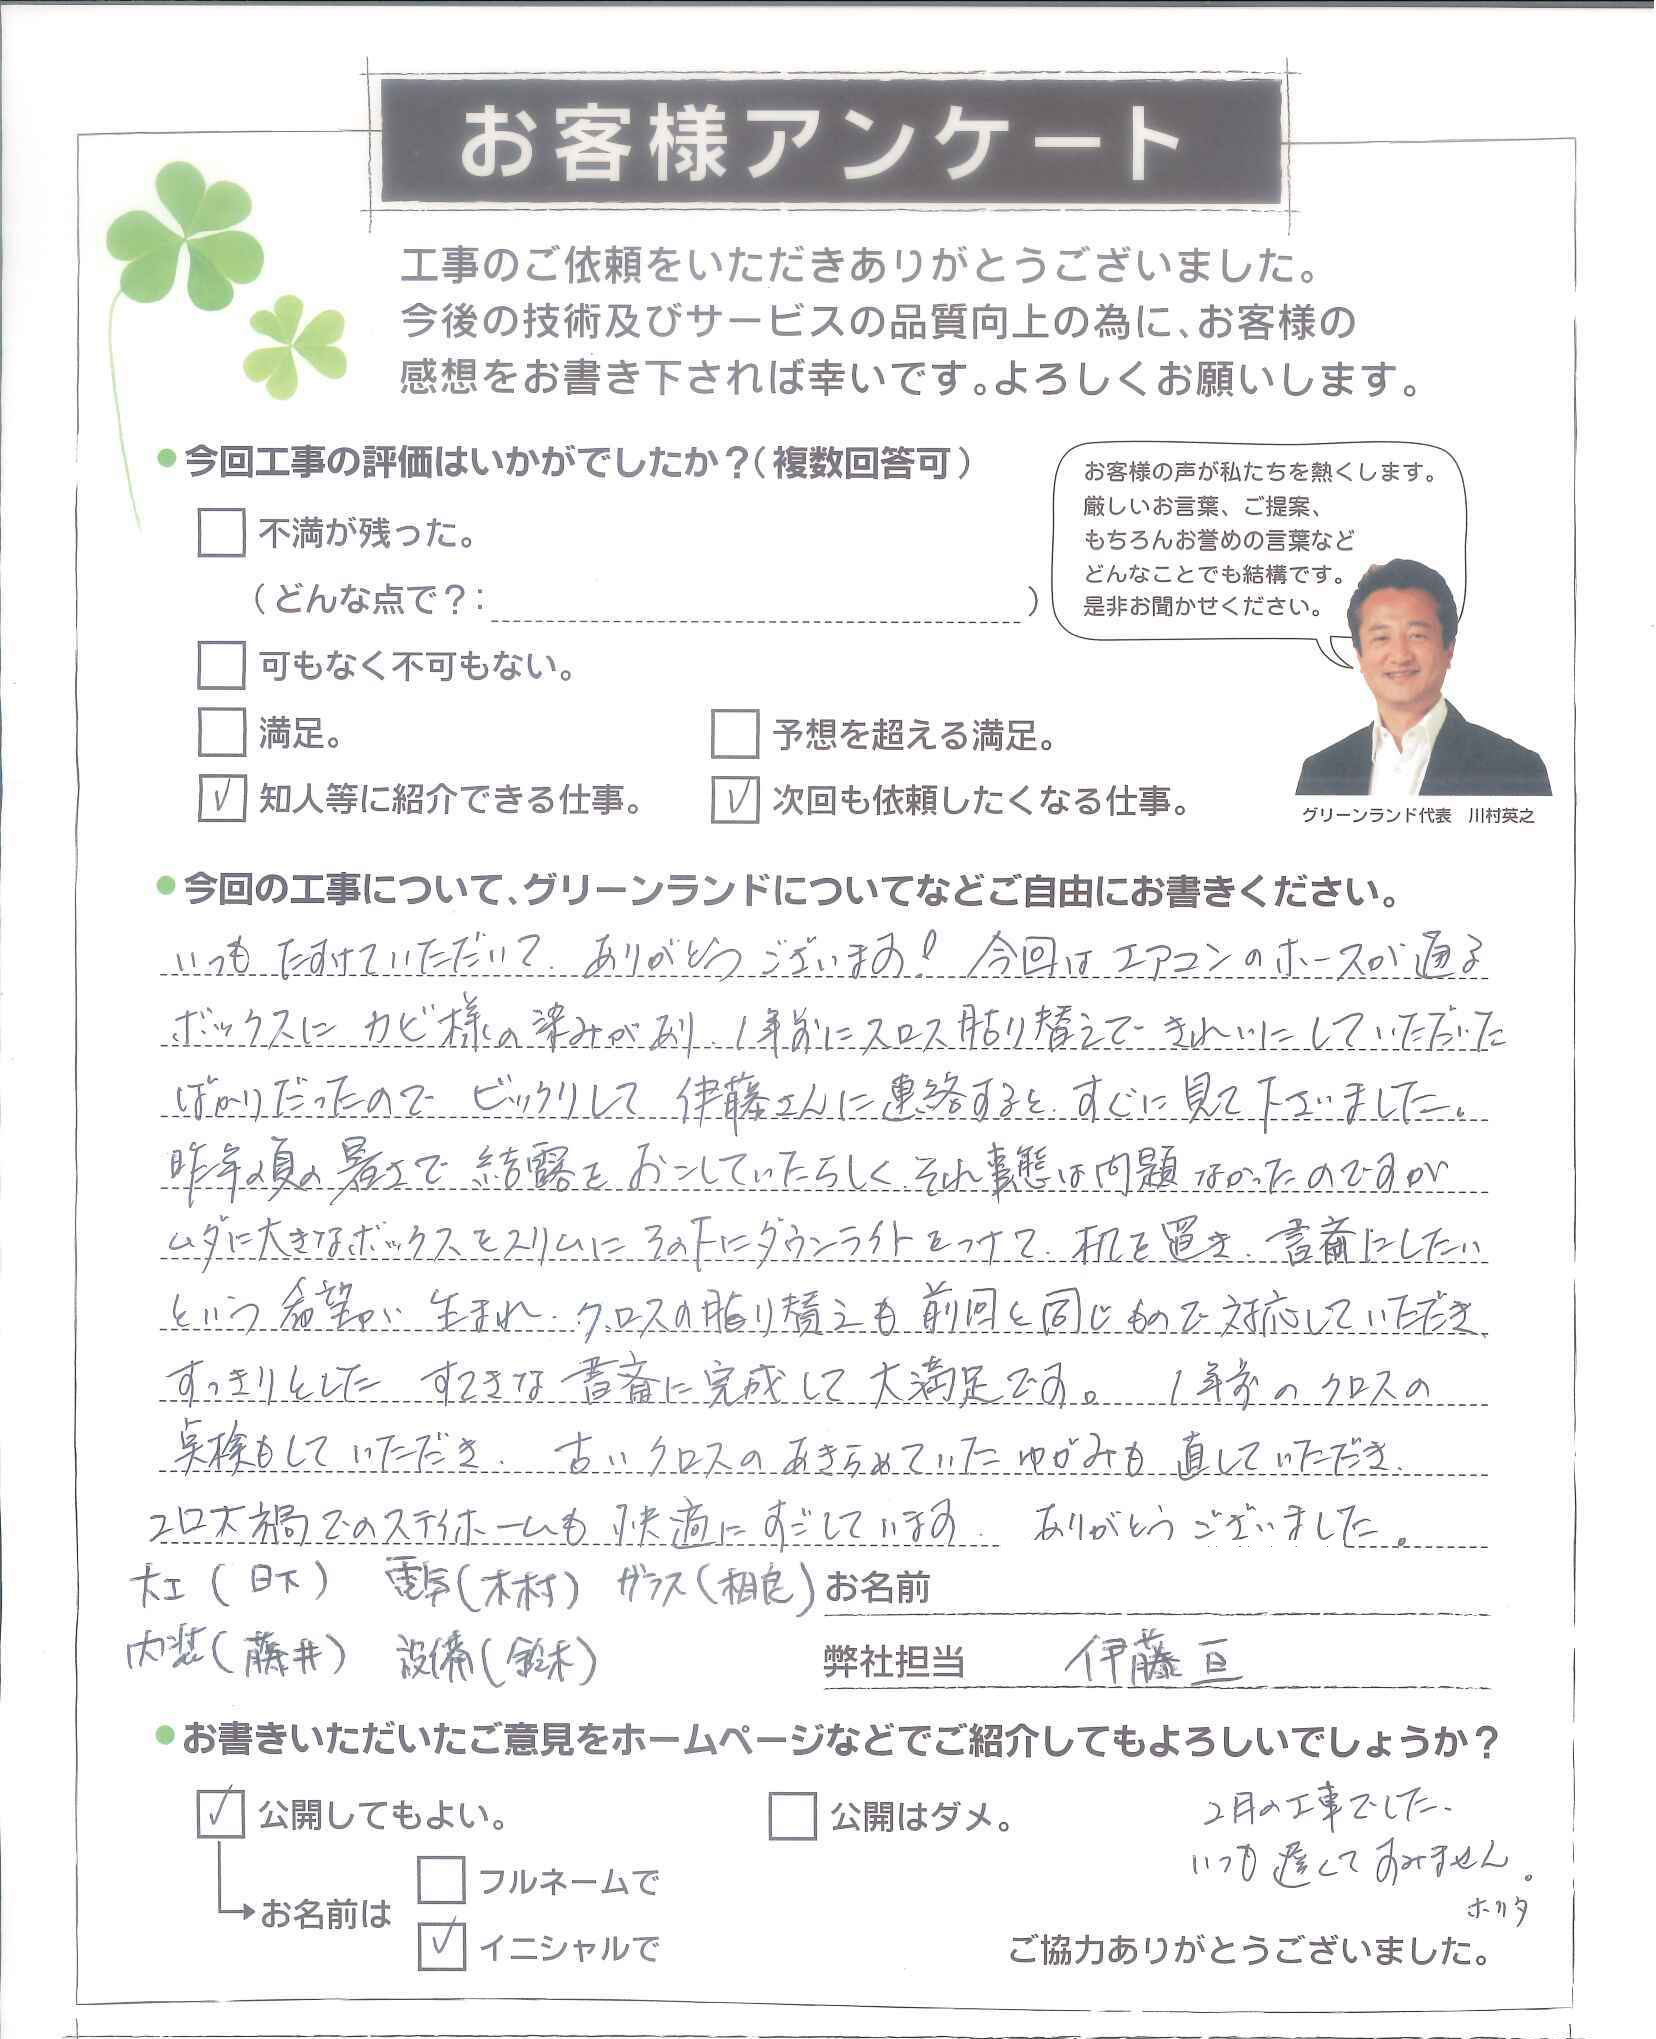 お客様アンケート
工事のご依頼をいただきありがとうございました。
今後の技術及びサービスの品質向上の為に、お客様の
感想をお書き下されば幸いです。よろしくお願いします。
今回工事の評価はいかがでしたか？（複数回答可）
不満が残った。
（どんな点で？：　）
可もなく不可もない。
満足。
予想を超える満足。
知人等に紹介できる仕事。
次回も依頼したくなる仕事。
お客様の声が私たちを熱くします。
厳しいお言葉、ご提案、
もちろんお誉めの言葉など
どんなことでも結構です。
是非お聞かせください。
グリーンランド代表　川村英之
今回の工事について、グリーンランドについてなどご自由にお書きください。
いつも たすけていただいて、ありがとうございます! 今回はエアコンのホースが通る
ボックスに カビ様の染みがあり、1年前にスロス貼り替えで きれいにしていただいた
ばかりだったので ビックリして 伊藤さんに連絡すると、すぐに見て下さいました。
昨年の夏の暑さで 結露を おこしていたらしく、それ事態は問題なかったのですが
ムダに大きなボックスをスリムに その下にダウンライトをつけて、机を置き、書斎にしたい
という 希望が 生まれ、クロスの貼り替えも 前回と同じもので 対応していただき、
すっきりとした すてきな 書斎に完成して 大満足です。 1年前のクロスの
点検もして いただき、 古いクロスの あきらめていた ゆがみも 直していただき、
コロナ禍でのステイホームも 快適に すごしています。 ありがとう ございました。
大工（日下） 電気（木村） ガラス（相良）
お名前
内装（藤井） 設備（鈴木）
弊社担当 伊藤 亘
お書きいただいたご意見をホームページなどでご紹介してもよろしいでしょうか？
公開してもよい。
公開はダメ。
お名前は
フルネームで
イニシャルで
2月の工事でした、
いつも 遅くて すみません。
ホリタ
ご協力ありがとうございました。